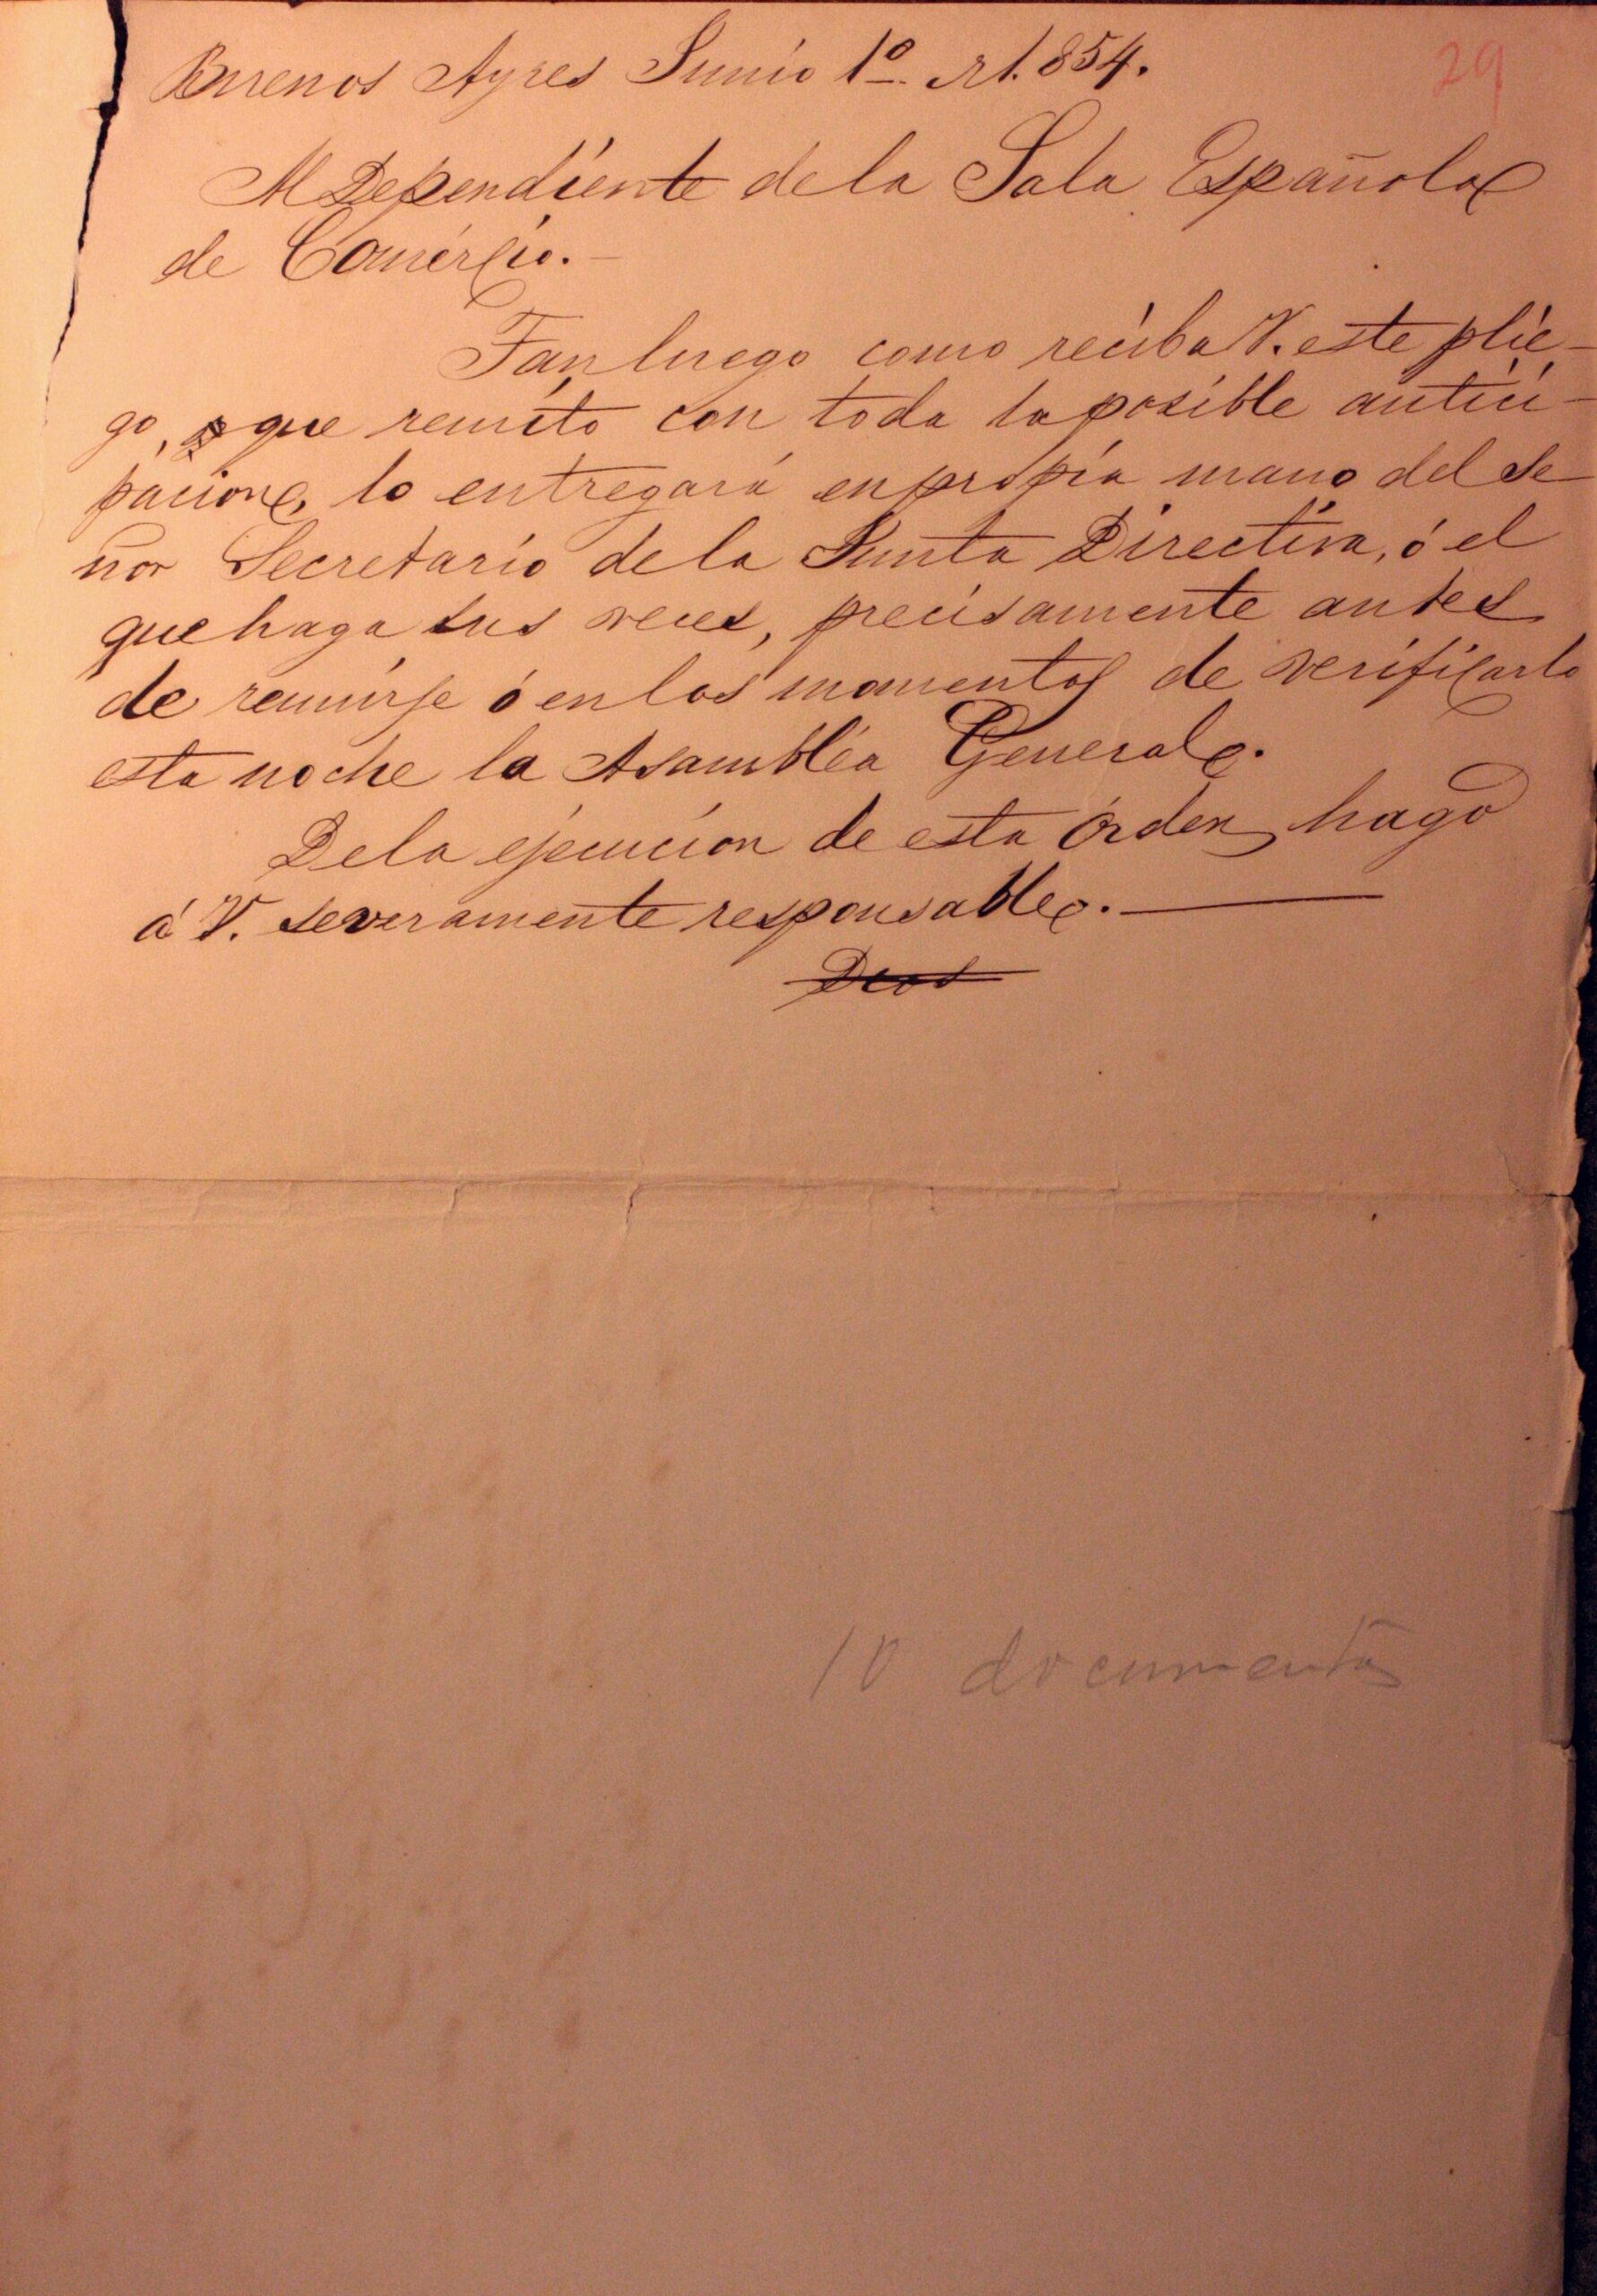 Buenos Ayres Junio 1º de 1.854.
29
Al Dependiente de la Sala Española
de Comercio.—
Tan luego como reciba V. este plie-
go, que remito con toda la posible antici-
pacion, lo entregará en propia mano del Se
ñor Secretario de la Junta Directiva, ó el
que haga sus veces, precisamente antes
de reunirse ó en los momentos de verificarlo
esta noche la Asambléa General.
De la ejecucion de esta órden, hago
á V. severamente responsable.—
Dios
10 documentos